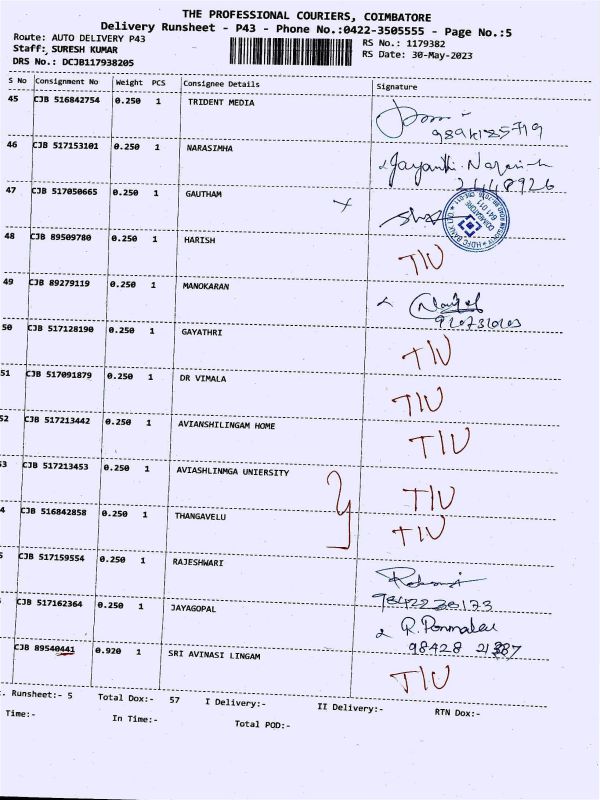 THE PROFESSIONAL COURIERS, COIMBATORE
Delivery Runsheet - P43 - Phone No.:0422-3505555 - Page No.:5
Route: AUTO DELIVERY P43 RS No.: 1179382
Staff: SURESH KUMAR RS Date: 30-May-2023
DRS No.: DCJB117938205
S No Consignment No Weight PCS Consignee Details Signature
45 CJB 516842754 0.250 1 TRIDENT MEDIA
9894185719
46 CJB 517153101 0.250 1 NARASIMHA Jayanthi
2448926
47 CJB 517050665 0.250 1 GAUTHAM
HDFC BANK COIMBATORE 641 011
48 CJB 89509780 0.250 1 HARISH TIU
49 CJB 89279119 0.250 1 MANOKARAN
50 CJB 517128190 0.250 1 GAYATHRI TIU
51 CJB 517091879 0.250 1 DR VIMALA TIU
52 CJB 517213442 0.250 1 AVIANSHILINGAM HOME TIU
3 CJB 517213453 0.250 1 AVIASHLINMGA UNIERSITY TIU
4 CJB 516842858 0.250 1 THANGAVELU TIU
5 CJB 517159554 0.250 1 RAJESHWARI
CJB 517162364 0.250 1 JAYAGOPAL R. Ponmalar
CJB 89540441 0.920 1 SRI AVINASI LINGAM TIU
. Runsheet:- 5 Total Dox:- 57 I Delivery:- II Delivery:- RTN Dox:-
Time:- In Time:- Total POD:-